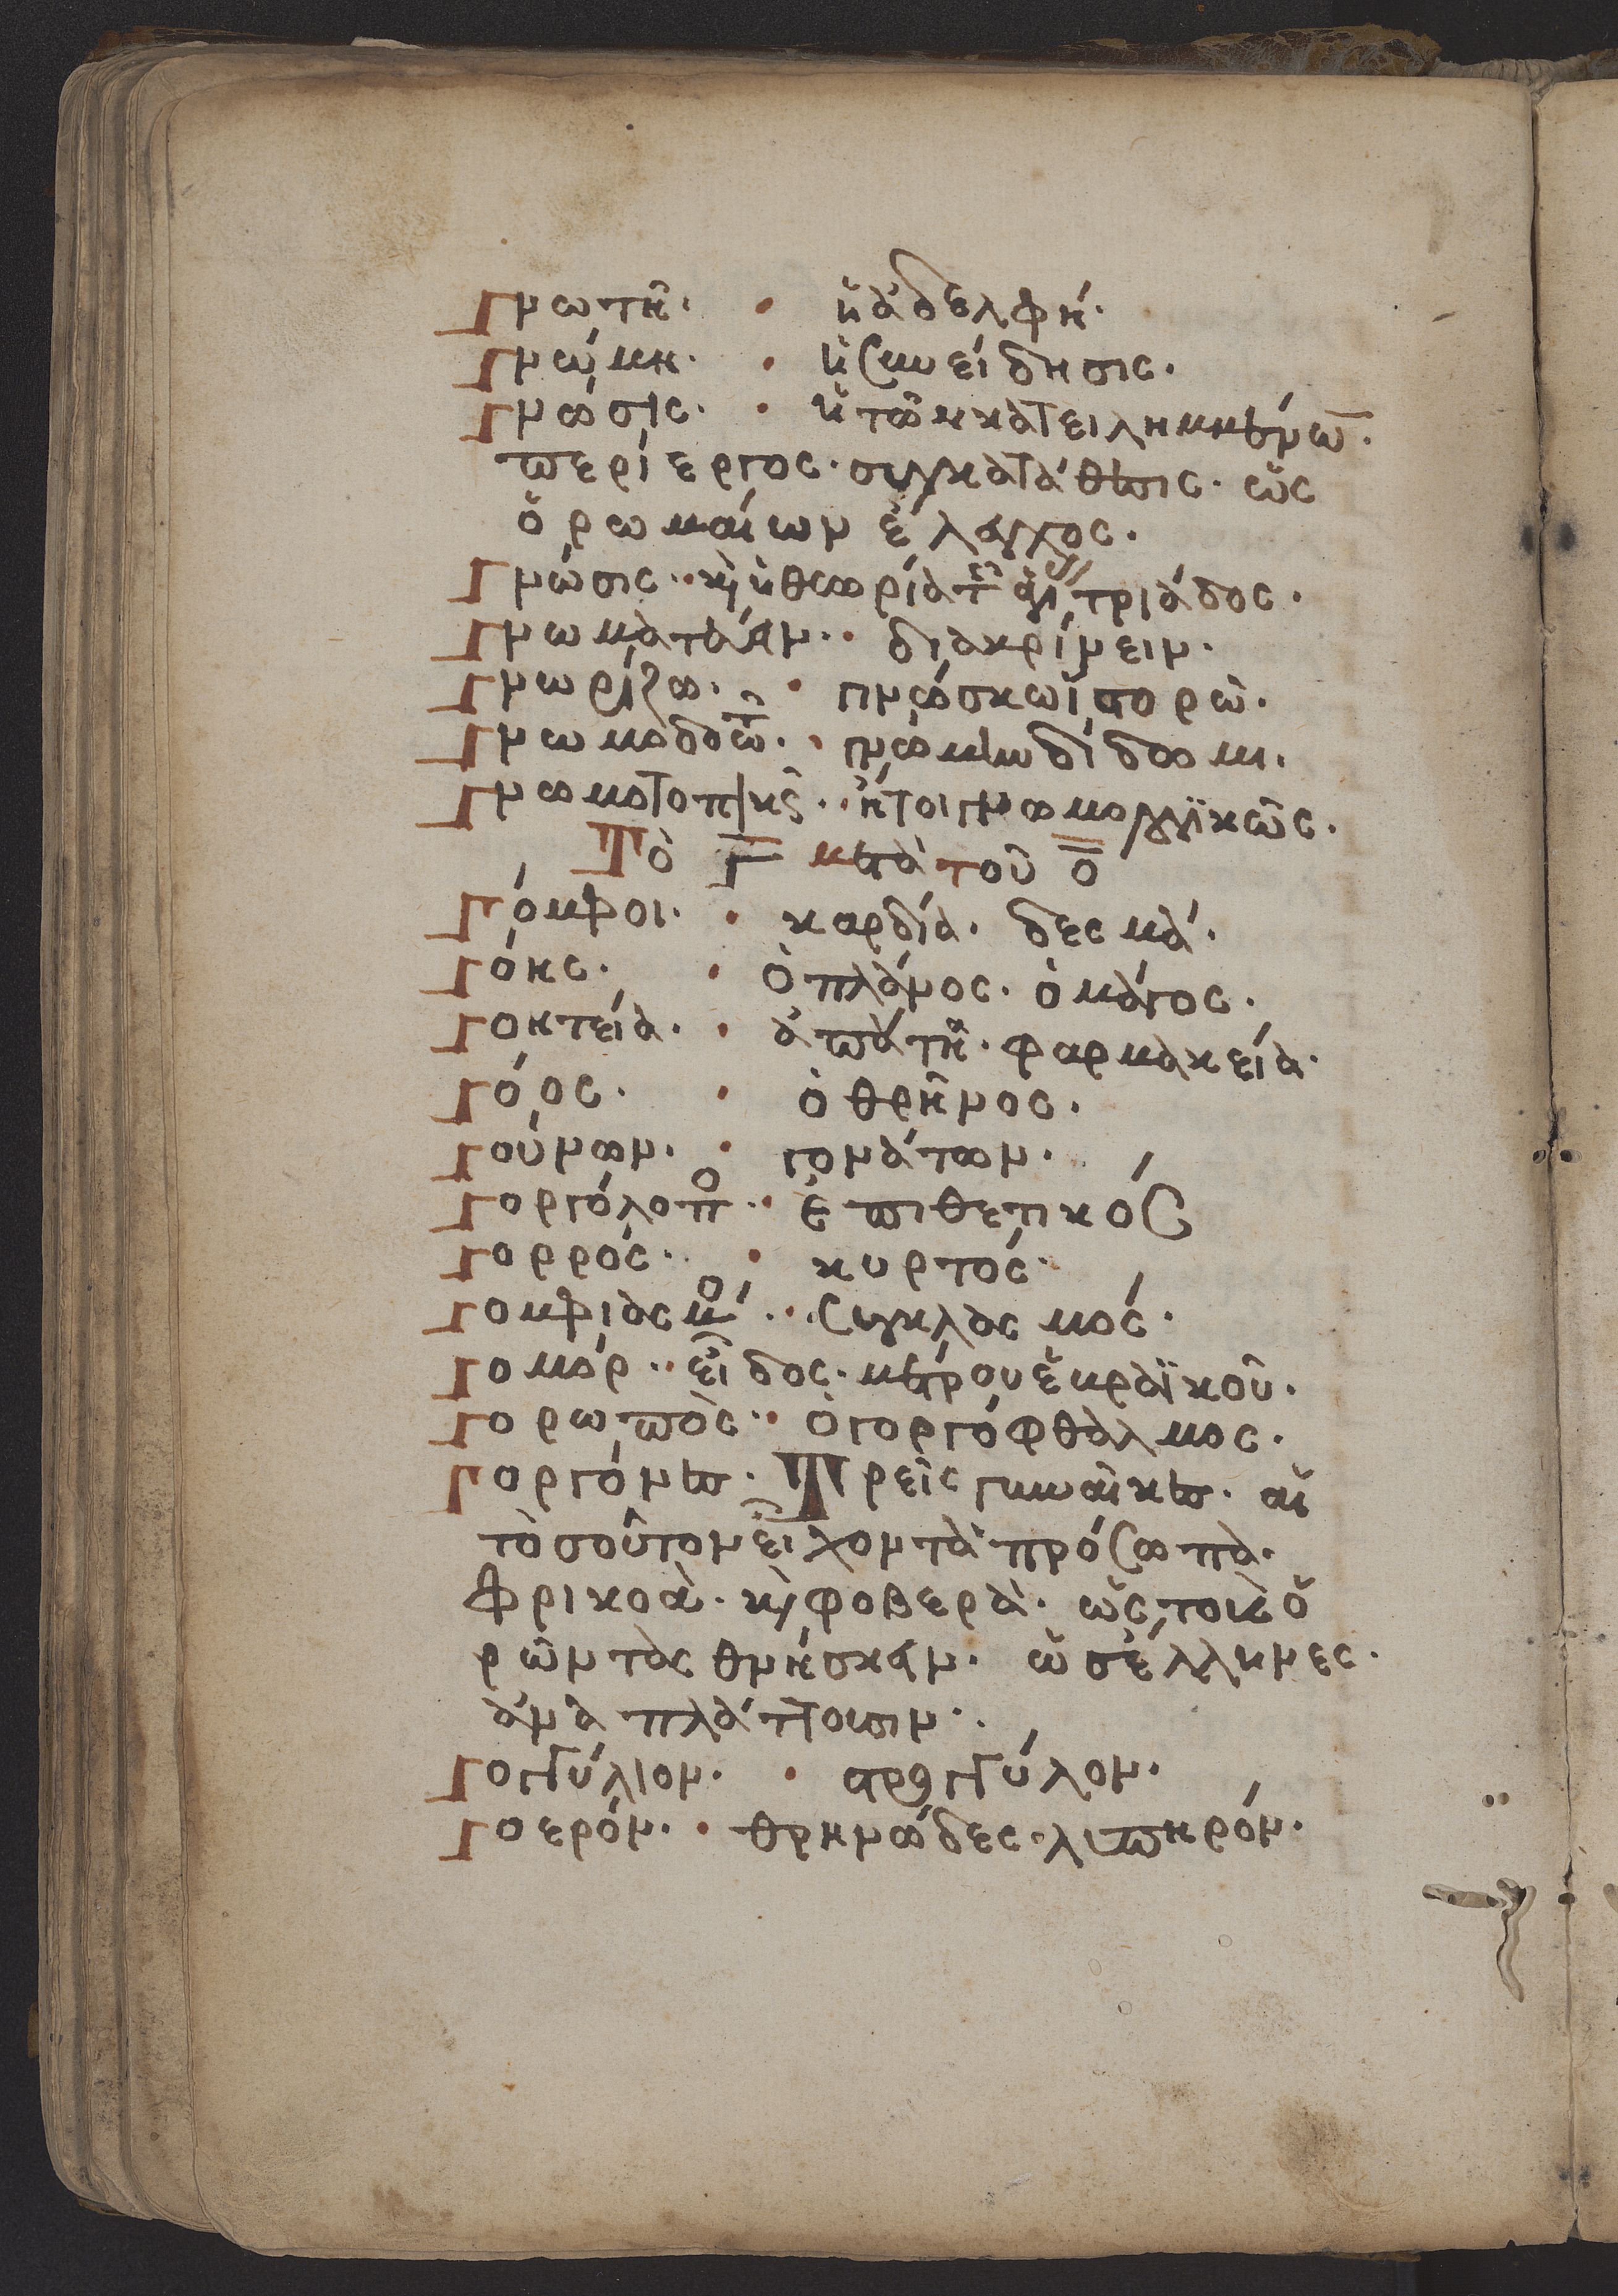 Γνωτὴ· ἡ ἀδελφή·
Γνώμη· ἡ συνείδησις·
Γνῶσις· ἡ τῶν κατειλημμένων·
περίεργος· συγκατάθεσις· ὡς
ὁ ρωμαίων ἔλεγχος·
Γνῶσις· κὴ ἡ θεωρία τῆς ἁγί τριάδος·
Γνωματεύειν· διακρίνειν·
Γνωρίζω· γινώσκω ἱστορῶ·
Γνωμοδοτῶ· γνώμην δίδωμι·
Γνωματοπικῶς· ἤτοι γνωμαγγϊκῶς·
Τὸ Γ μετὰ τοῦ ο
Γόμφοι· καρδία· δεσμά·
Γόης· ὁ πλάνος· ὁ μάγος·
Γοητεία· ἀπάτη· φαρμακεία·
Γόος· ὁ θρῆνος·
Γούνων· γονάτων·
Γοργόλοπο· ἐπιθετικός
Γορρός· κυρτός·
Γομφιασμό· συγκλασμός·
Γομόρ· εἶδος· μέτρου ἑβραϊκοῦ·
Γορωπὸς· ὁ γοργόφθαλμος·
Γοργόνες· Τρεῖς γυναῖκες· αἳ
τοσοῦτον εἶχον τὰ πρόσωπα·
φρικτά· κὴ φοβερὰ· ὡς τοὺς ὁ
ρῶντας θνήσκειν· ὡς ἕλληνες·
ἀναπλάττουσιν·
Γογγύλιον· στρογγύλον·
Γοερόν· θρηνῶδες· λυπηρόν·